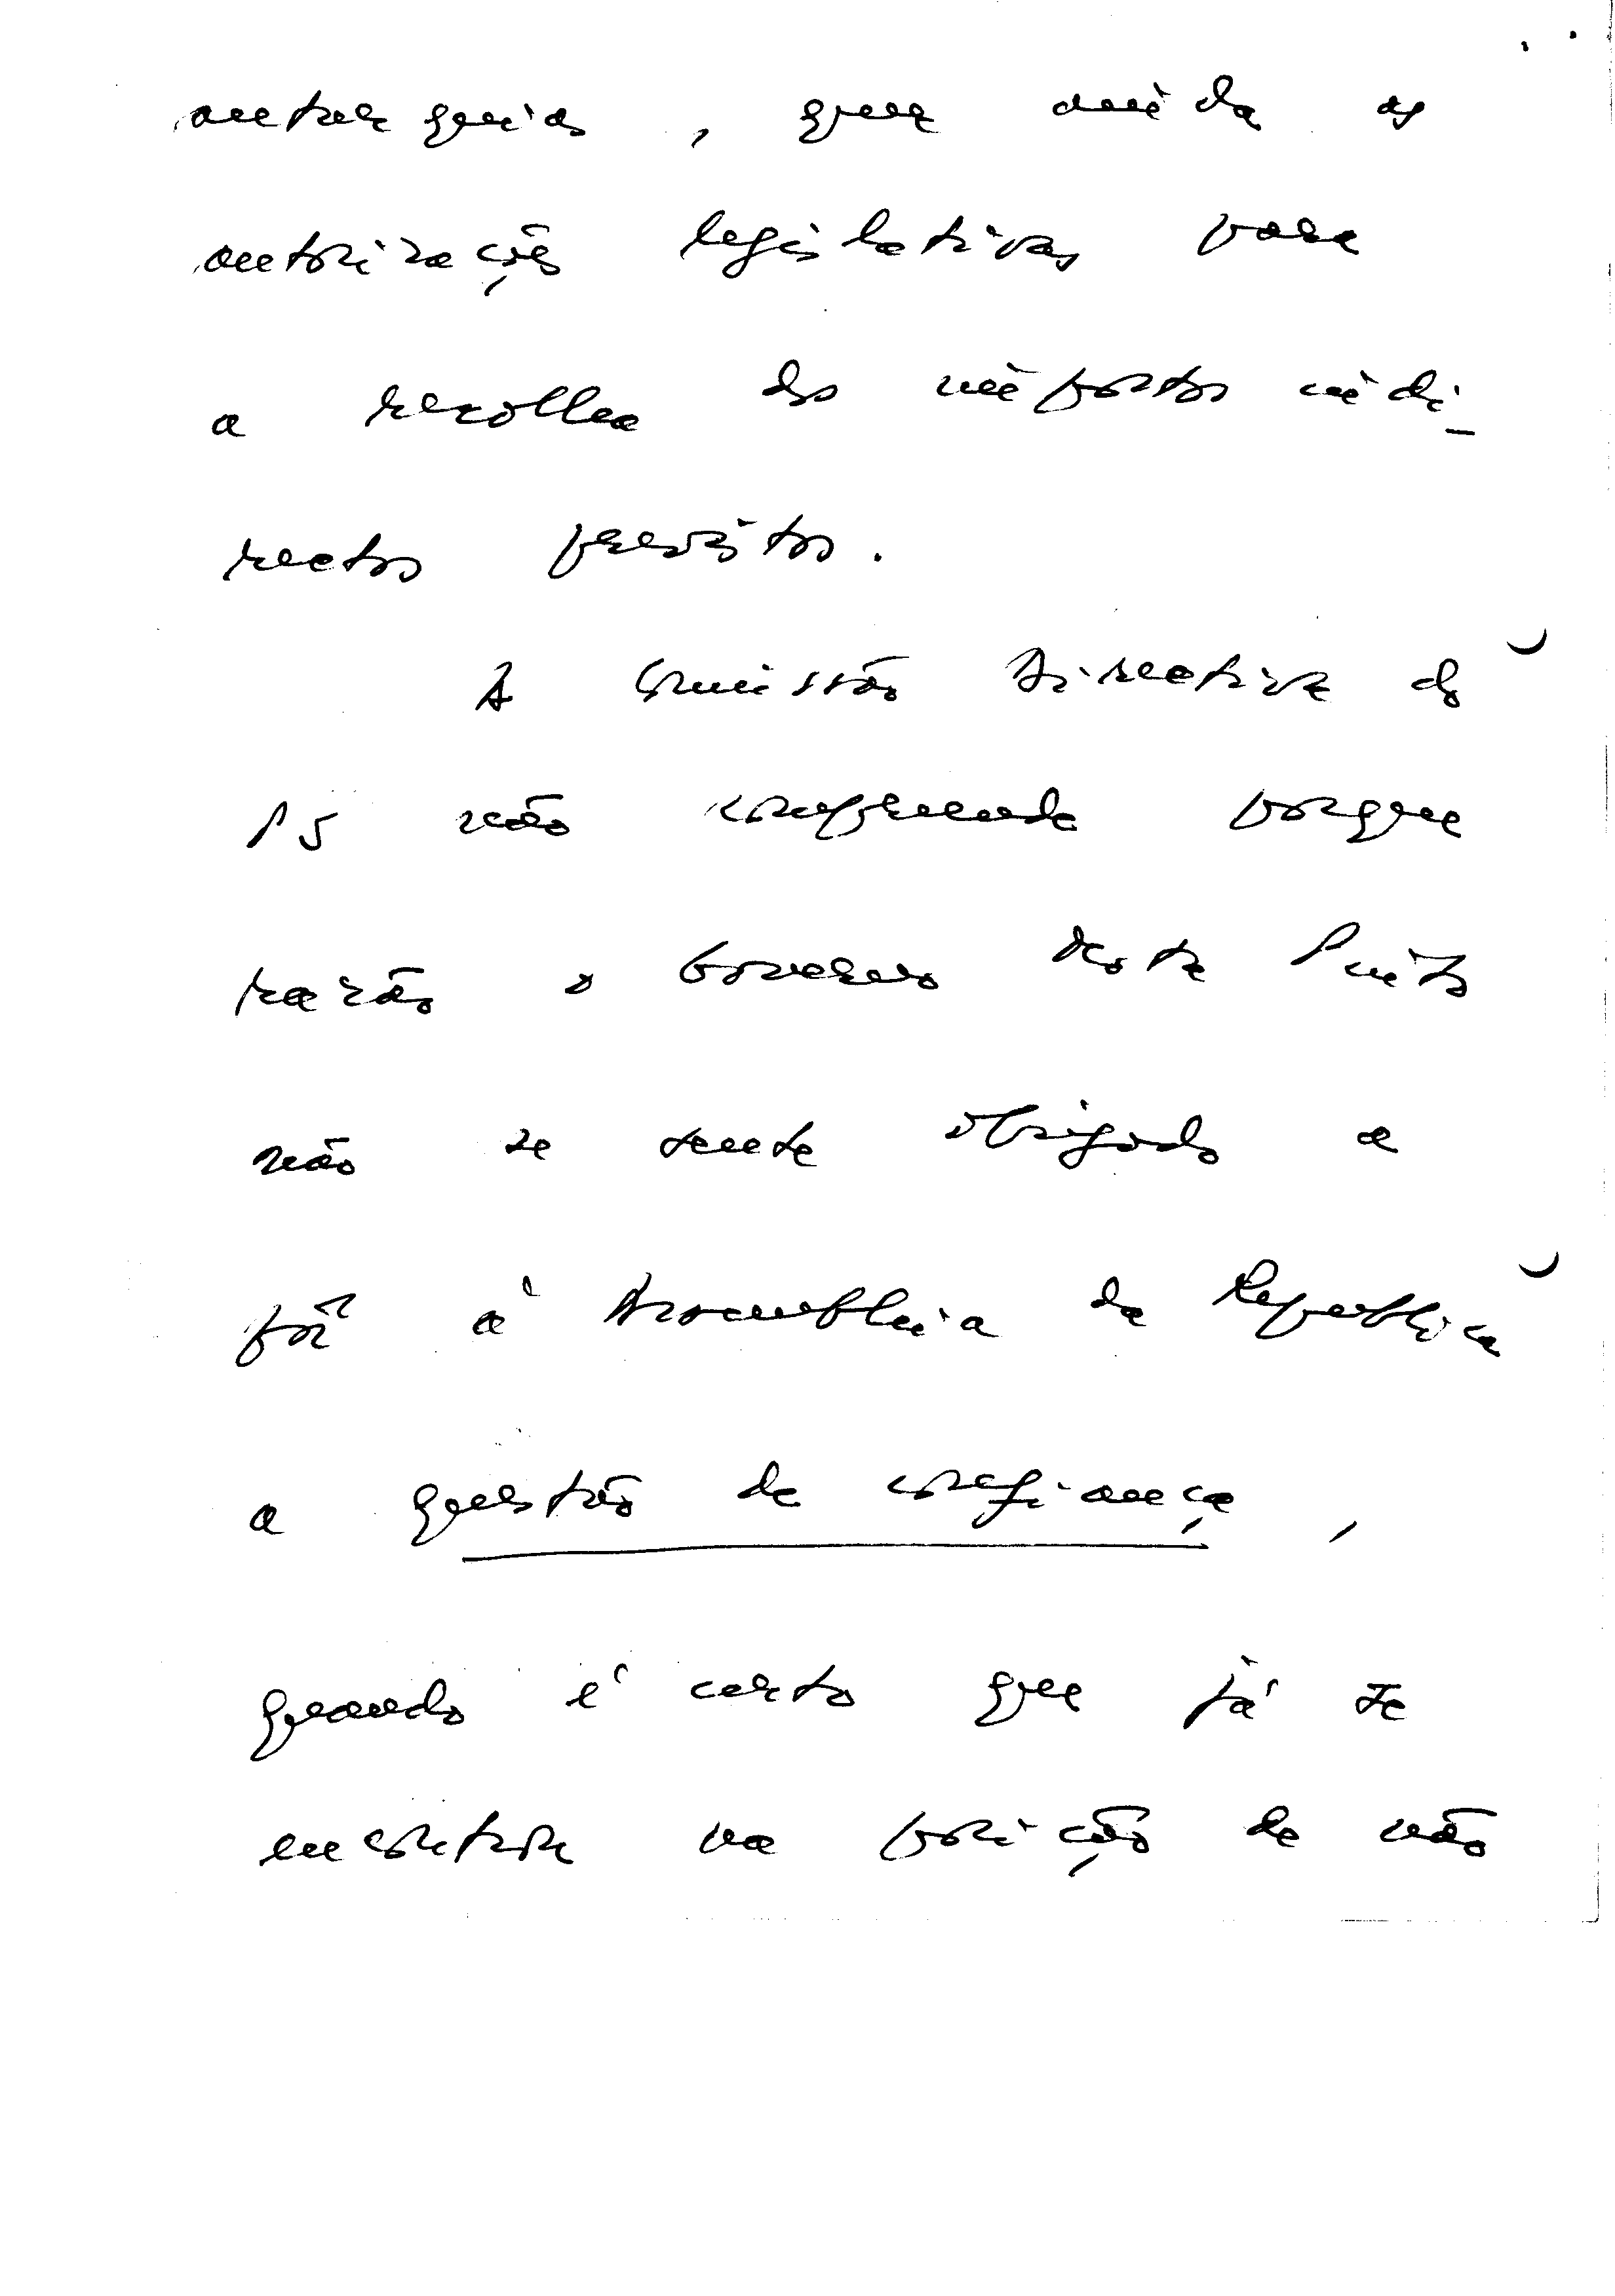 autarquias, quer ainda as
autorizações legislativas para
a recolha dos impostos indi-
rectos previstos.
A Comissão Directiva do
PS não compreende porque
razão o Governo deste Pinto
não se sente obrigado a
pôr à Assembleia da República
a questão de confiança,
quando é certo que já se
encontra na posição de não